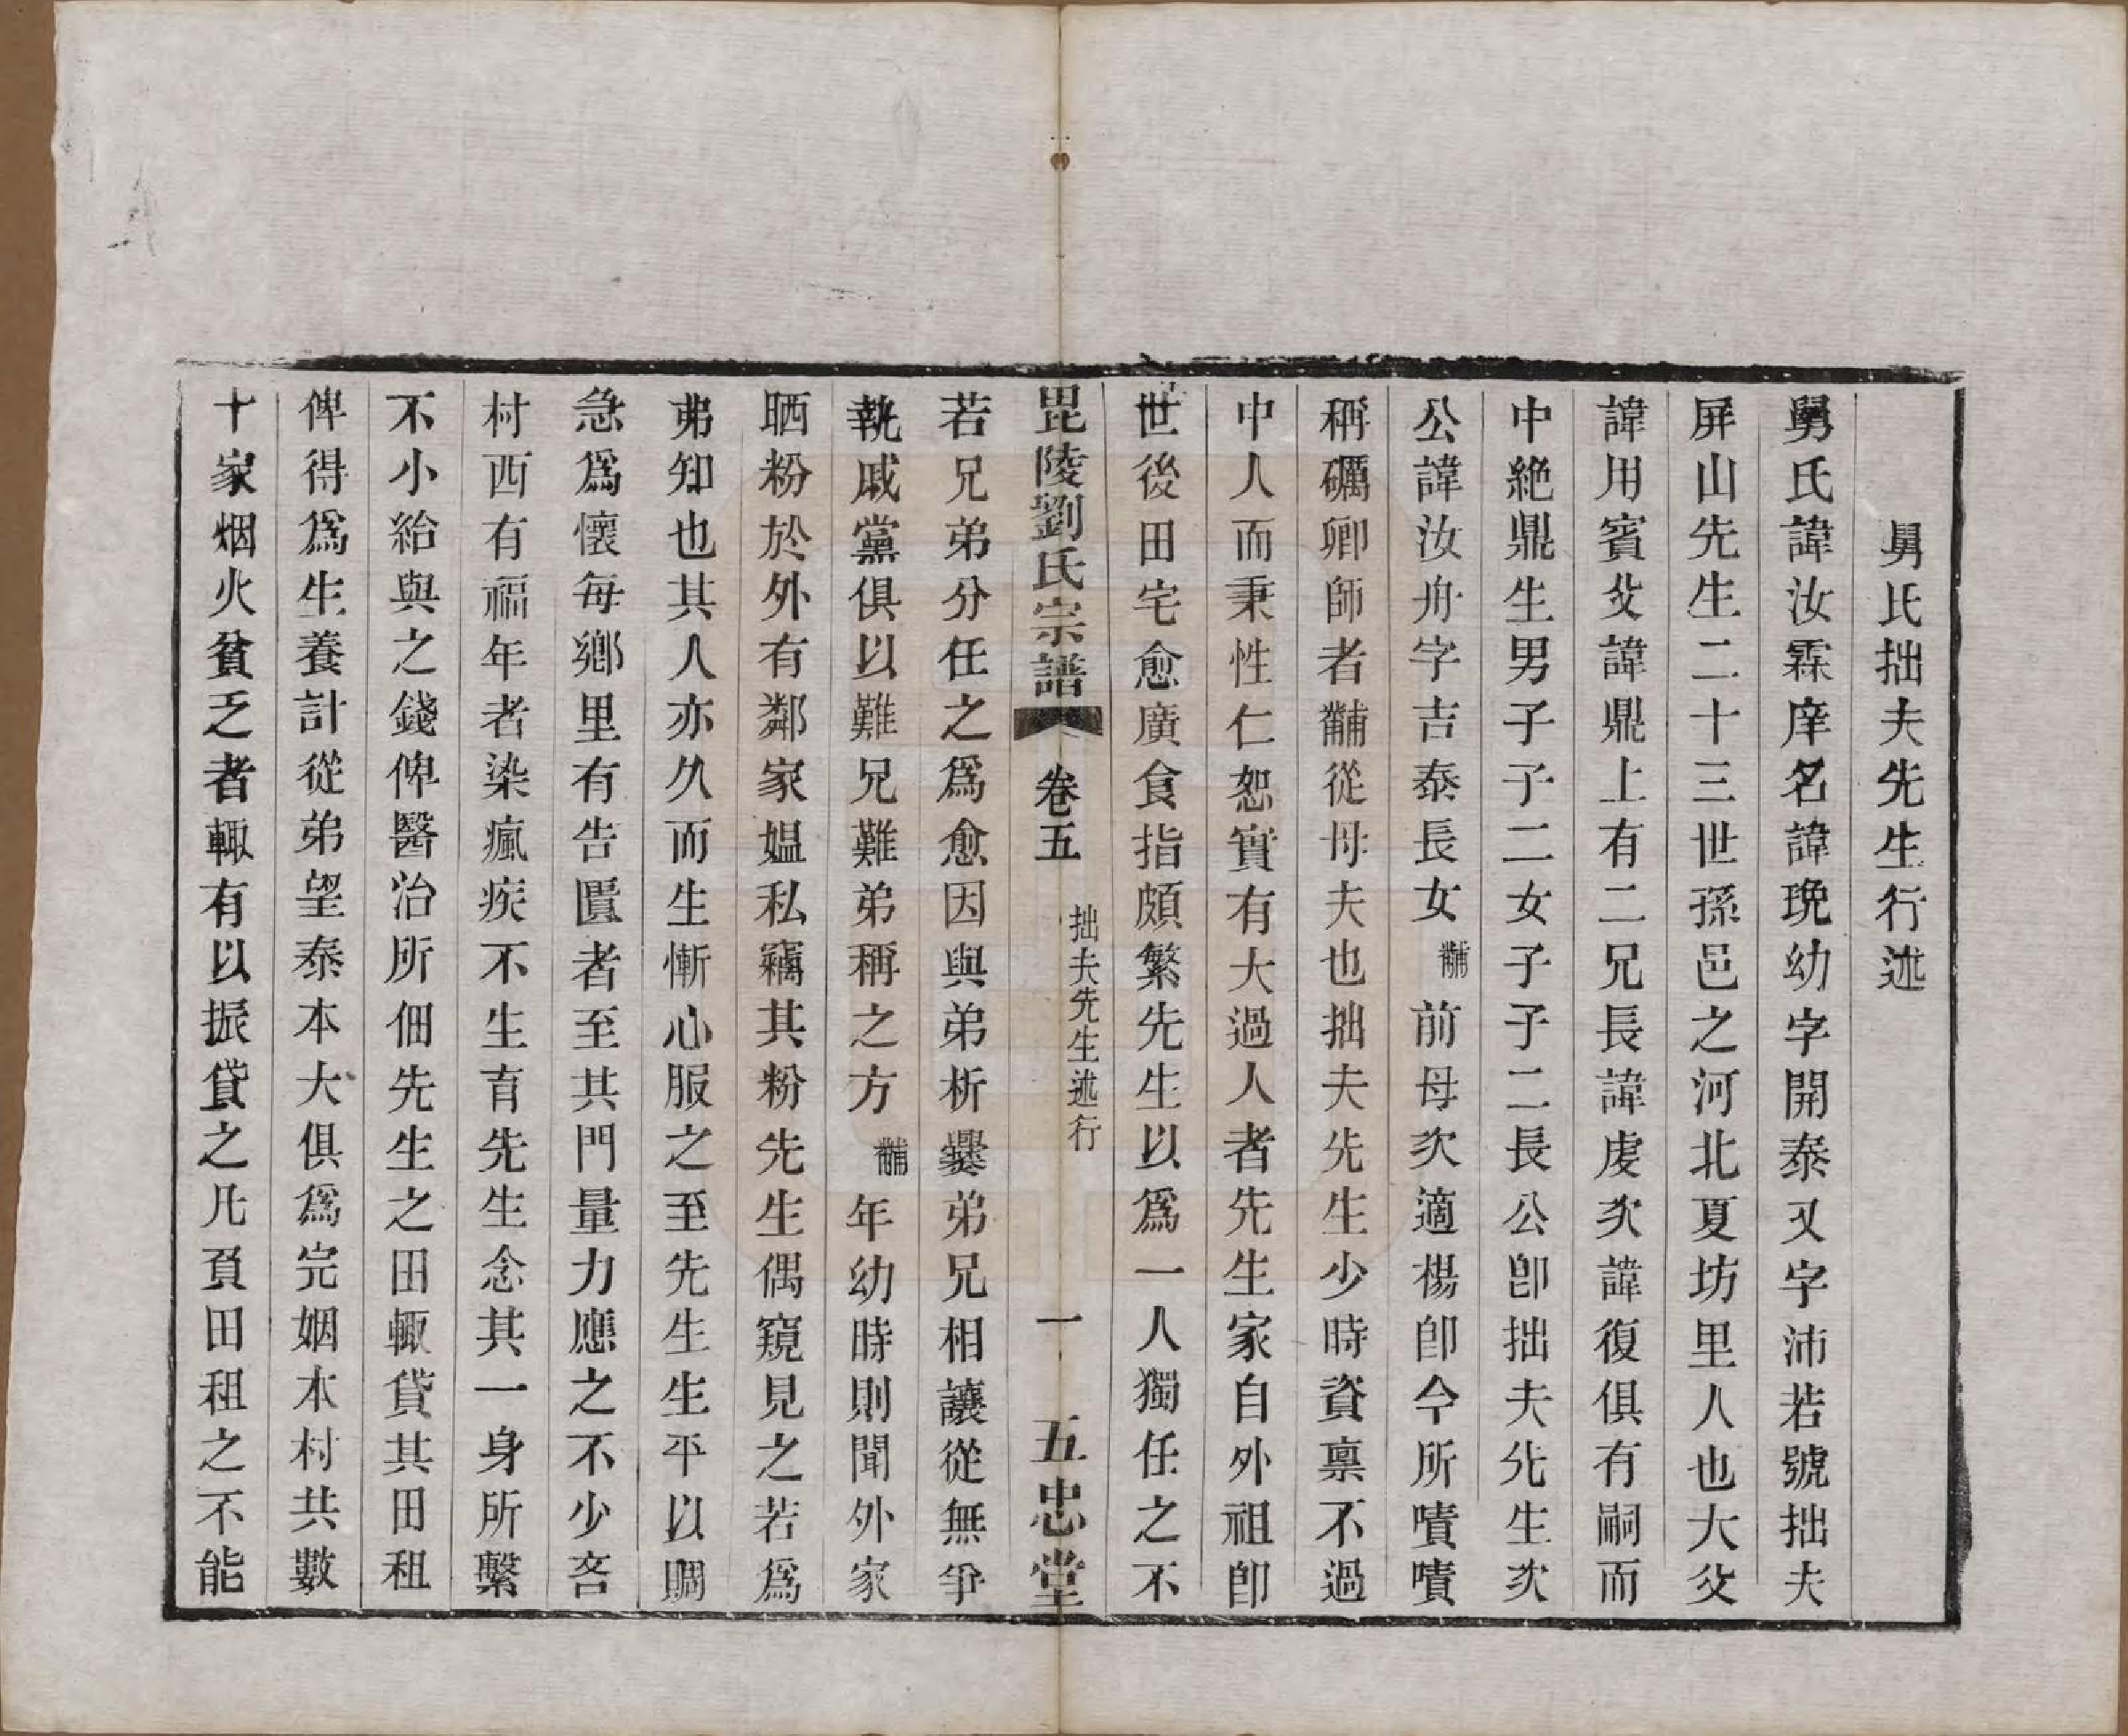 舅氏拙夫先生行述
舅氏諱汝霖庠名諱琓幼字開泰又字沛若號拙夫
屏山先生二十三世孫邑之河北夏坊里人也大父
諱用賓父諱鼎上有二兄長諱虔次諱復俱有嗣而
中絶鼎生男子子二女子子二長公卽拙夫先生次
公諱汝舟字吉泰長女黼前母次適楊卽今所嘖嘖
稱礪卿師者黼從母夫也拙夫先生少時資禀不過
中人而秉性仁恕實有大過人者先生家自外祖卽
世後田宅愈廣食指頗繁先生以爲一人獨任之不
毘陵劉氏宗譜 卷五 拙夫先生述行 一 五忠堂
若兄弟分任之爲愈因與弟析爨弟兄相讓從無爭
執戚黨俱以難兄難弟稱之方黼年幼時則聞外家
晒粉於外有鄰家媪私竊其粉先生偶窺見之若爲
弗知也其人亦久而生慚心服之至先生生平以賙
急爲懷每鄉里有告匱者至其門量力應之不少吝
村西有福年者染瘋疾不生育先生念其一身所繫
不小給與之錢俾醫治所佃先生之田輙貸其田租
俾得爲生養計從弟望泰本大俱爲完姻本村共數
十家烟火貧乏者輙有以振貸之凡負田租之不能